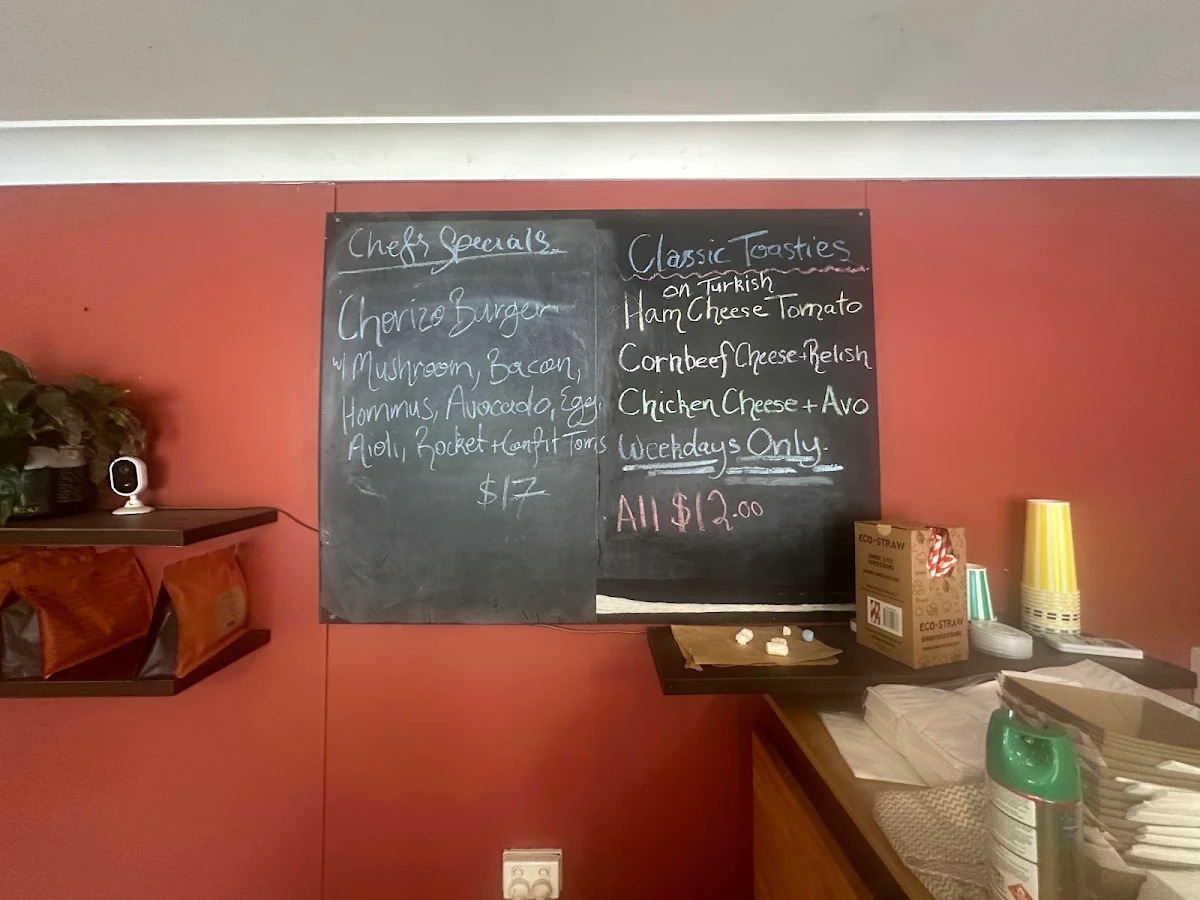 Chefs Specials
Chorizo Burger
w/ Mushroom, Bacon,
Hommus, Avocado, Egg,
Aioli, Rocket + Confit Toms
$17
Classic Toasties
on Turkish
Ham Cheese Tomato
Cornbeef Cheese + Relish
Chicken Cheese + Avo
Weekdays Only.
All $12.00
ECO-STRAW
ECO-STRAW